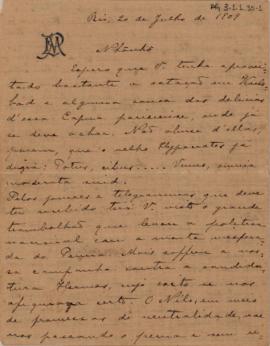 Rio, 20 de Julho de 1909
Nhônhô
Espero que V. tenha aprovei-
tado bastante a estação em Karls-
bad e alguma cousa das delicias
d'essa Capua parisiense, onde já
se deve achar. Não abuse d'ellas,
porem, que o velho Hyppocrates já
dizia: Potus, cibus..... Venus, omnia
moderata sint.
Pelos jornaes e telegrammas que deve
ter recebido terá V. visto o grande
trambolhão que levou a politica
nacional com a morte inespera-
da do Penna. Mais soffreu a nos-
sa campanha contra a candida-
tura Hermes, cujo exito se nos
afigurava certo. O Nilo, em meio
de promessas de neutralidade, vae
nos passando a perna e sem